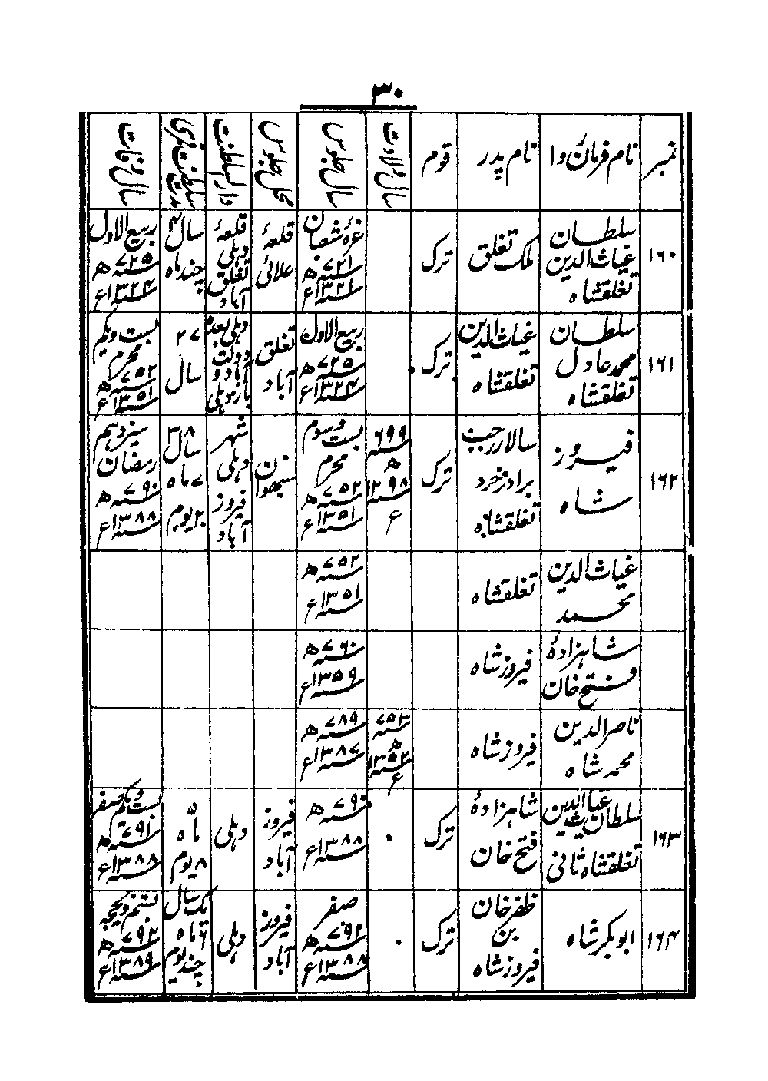 ۳۰
نمبر
نام فرمان روا
نام پدر
قوم
سال ولادت
سال جلوس
محل جلوس
دار السلطنت
مدت سلطنت قمری
سال وفات
۱۶۰
سلطان
غیاث الدین
تغلقشاہ
ملک تغلق
ترک
غرہ شعبان
۷۲۱ھ
۱۳۲۱ء
قلعۂ
علائی
قلعۂ
دہلی
تغلق
آباد
۴ سال
چند ماہ
ربیع الاول
۷۲۵ھ
۱۳۲۴ء
۱۶۱
سلطان
محمد عادل
تغلقشاہ
غیاث الدین
تغلقشاہ
ترک
ربیع الاول
۷۲۵ھ
۱۳۲۴ء
تغلق
آباد
دہلی بعدہ
دولت
آباد و
باز دہلی
۲۷
سال
بست ویکم
محرم
۷۵۲ھ
۱۳۵۱ء
۱۶۲
فیروز
شاہ
سالار رجب
برادر خرد
تغلقشاہ
ترک
۶۹۹
ھ
۱۲۹۸
ء
بست وسوم
محرم
۷۵۲ھ
۱۳۵۱ء
شہر
دہلی
فیروز
آباد
۳۸
سال
۷ ماہ
۲۰ یوم
سیزدہم
رمضان
۷۹۰ھ
۱۳۸۸ء
غیاث الدین
محمد
تغلقشاہ
۷۵۲ھ
۱۳۵۱ء
شاہزادہ
فتح خان
فیروز شاہ
۷۶۰ھ
۱۳۵۹ء
ناصر الدین
محمد شاہ
فیروز شاہ
۷۵۳
ھ
۱۳۵۲
ء
۷۸۹ھ
۱۳۸۷ء
۱۶۳
سلطان غیاث الدین
تغلقشاہ ثانی
شاہزادہ
فتح خان
ترک
۰
۷۹۰ھ
۱۳۸۸ء
فیروز
آباد
دہلی
۵
ماہ
۸ یوم
بست ویکم صفر
۷۹۱ھ
۱۳۸۸ء
۱۶۴
ابوبکر شاہ
ظفر خان
بن
فیروز شاہ
ترک
۰
صفر
۷۹۲ھ
۱۳۸۸ء
فیروز
آباد
دہلی
یک سال
۶ ماہ
چند یوم
ذیحجہ
۷۹۲ھ
۱۳۸۹ء